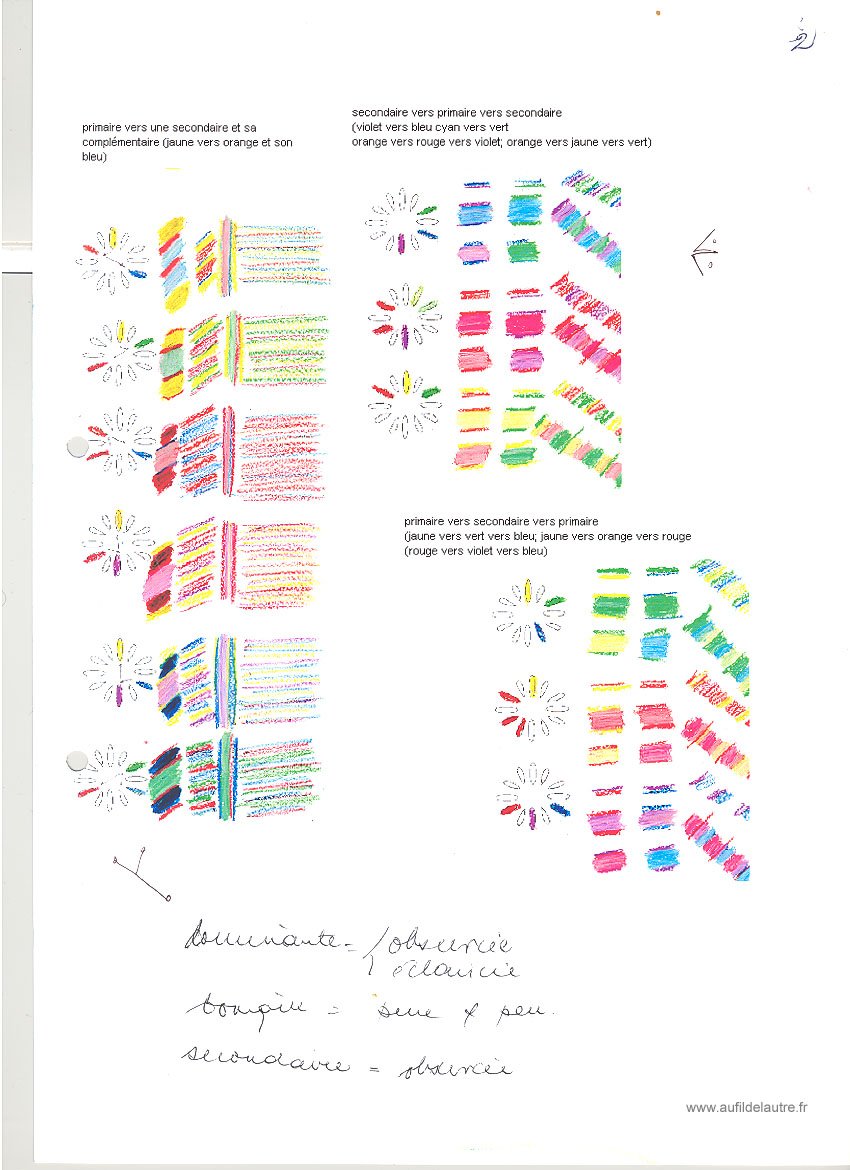 2
primaire vers une secondaire et sa
complémentaire (jaune vers orange et son
bleu)
secondaire vers primaire vers secondaire
(violet vers bleu cyan vers vert
orange vers rouge vers violet; orange vers jaune vers vert)
primaire vers secondaire vers primaire
(jaune vers vert vers bleu; jaune vers orange vers rouge
(rouge vers violet vers bleu)
dominante = obscurcie
éclaircie
= peu.
secondaire = obscurcie
www.aufildelautre.fr